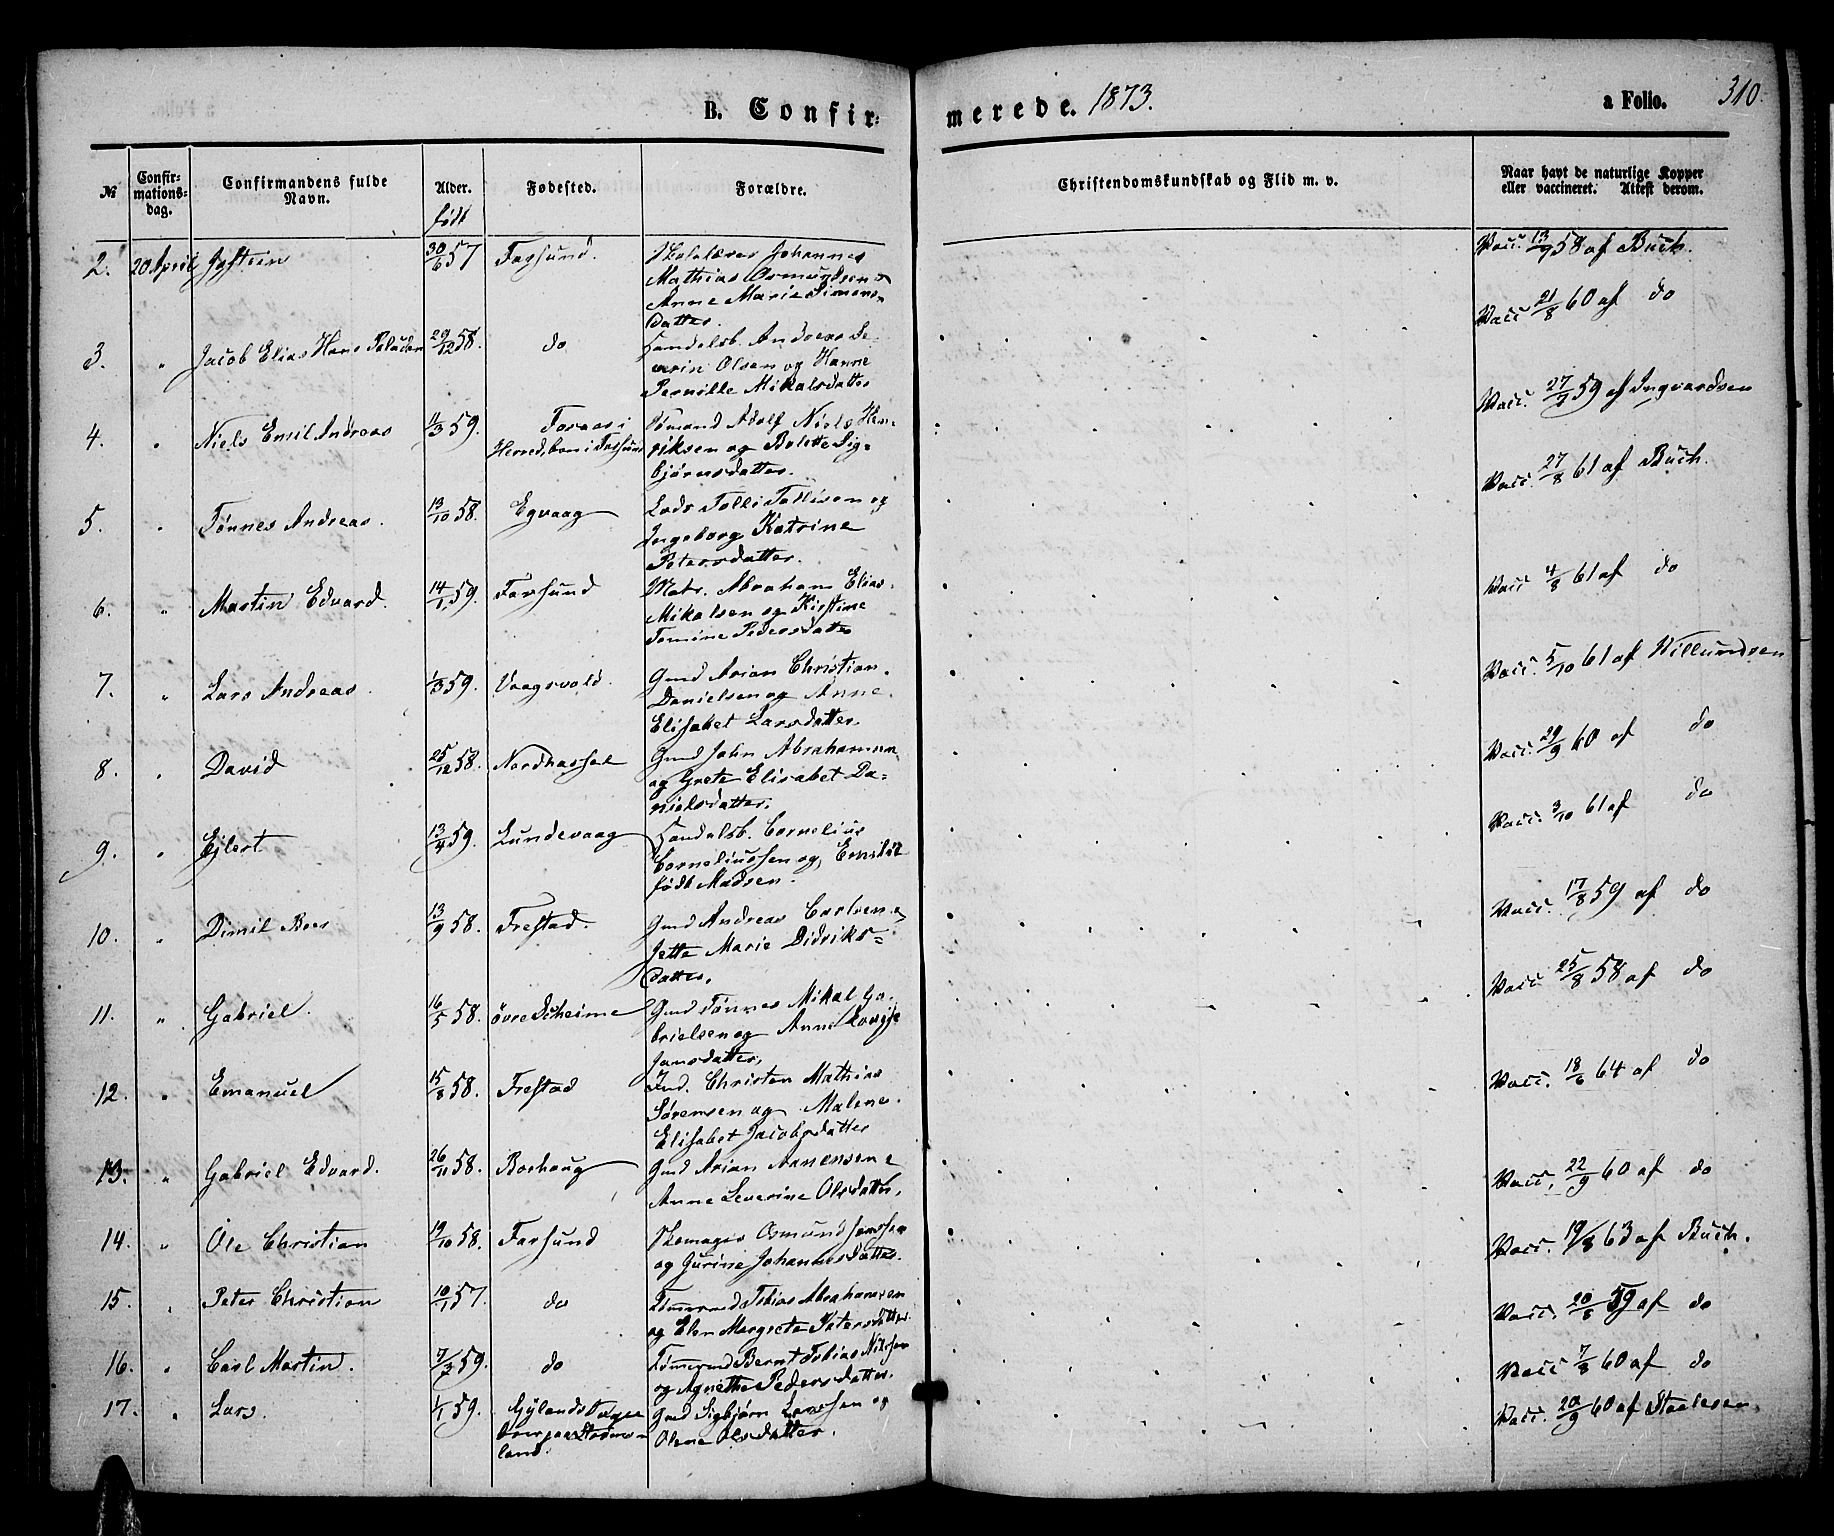 B. Confir-
merede. 1873.
a Folio. 310.
№
Confir-
mations-
dag.
Confirmandens fulde
Navn.
Alder.
født
Fødested.
Forældre.
Christendomskundskab og Flid m. v.
Naar havt de naturlige Kopper
eller vaccineret. Attest derom.
2. 20 April Jystein 30/6 57 Farsund. Skolelærer Johannes
Mathias Osmundsen &
Anne Marie Simons-
datter.
Vacc. 13/9 58 af Buch.
3. " Jacob Elias Hans Paludan 29/12 58. do Handelsb. Andreas Se-
verin Olsen og Hanne
Pernille Mikalsdatter
Vacc 21/8 60 af do
4. " Niels Emil Andreas 11/3 59. Farsund Adolf Niels Hen-
Herred, boen i Farsund
riksen og Bolette Sig-
bjørnsdatter.
Vacc. 27/7 59 af Ingvardsen
5. " Tønnes Andreas. 13/10 58. Egvaag Lods Tolli Tollisen og
Ingeborg Katrine
Petersdatter.
Vacc. 27/8 61 af Buch.
6. " Martin Edvard. 14/1 59. Farsund Matr. Abraham Elias
Mikalsen og Kirstine
Tomine Pedersdatter
Vacc 4/8 61 af do
7. " Lars Andreas. 1/3 59. Vaagsvold. Gmd Arian Christian
Danielsen og Anne
Elisabet Larsdatter.
Vacc. 5/10 61 af Willumdsen
8. " David 25/12 58. Nordhassel Gmd John Abrahamsen
og Grete Elisabet Da-
nielsdatter.
Vacc. 29/9 60 af do
9. " Ejlert 13/4 59. Lundevaag Handelsb. Cornelius
Corneliussen og Emilie
født Madsen.
Vacc. 3/10 61 af do
10. " Dimil Bees 13/9 58. Frestad. Gmd Andreas Carlsen &
Jette Marie Didriks-
datter.
Vacc. 17/8 59 af do
11. " Gabriel. 16/5 58. övre Skeime Gmd Tønnes Mikal Ga-
brielsen og Anne Lovise
Jansdatter.
Vacc 25/8 58 af do
12. " Emanuel 15/8 58. Frestad Ind. Christen Mathias
Sørensen og Malene
Elisabet Jacobsdatter
Vacc. 18/6 64 af do
13. " Gabriel Edvard. 26/11 58. Borhaug Gmd Arian Arnensen &
Anne Severine Olsdatter.
Vacc. 22/9 60 af do
14. " Ole Christian 19/10 58. Farsund Skomager Osmund Jenssen
og Gurine Johannesdatter.
Vacc. 19/8 63 af Buch.
15. " Peter Christian 10/1 57. do Tømmermd Tobias Abrahamsen
og Elen Margrete Petersdatter.
Vacc. 20/8 59 af do
16. " Carl Martin. 7/2 59. do Tømmermd Bernt Tobias Nilssen
og Agnethe Pedersdatter.
Vacc 7/8 60 af do
17. " Lars. 1/1 59. Gylands Sogn Gmd Sigbjørn Larssen og
land. Olene Olsdatter.
Vacc. 20/9 60 af Staalesen.